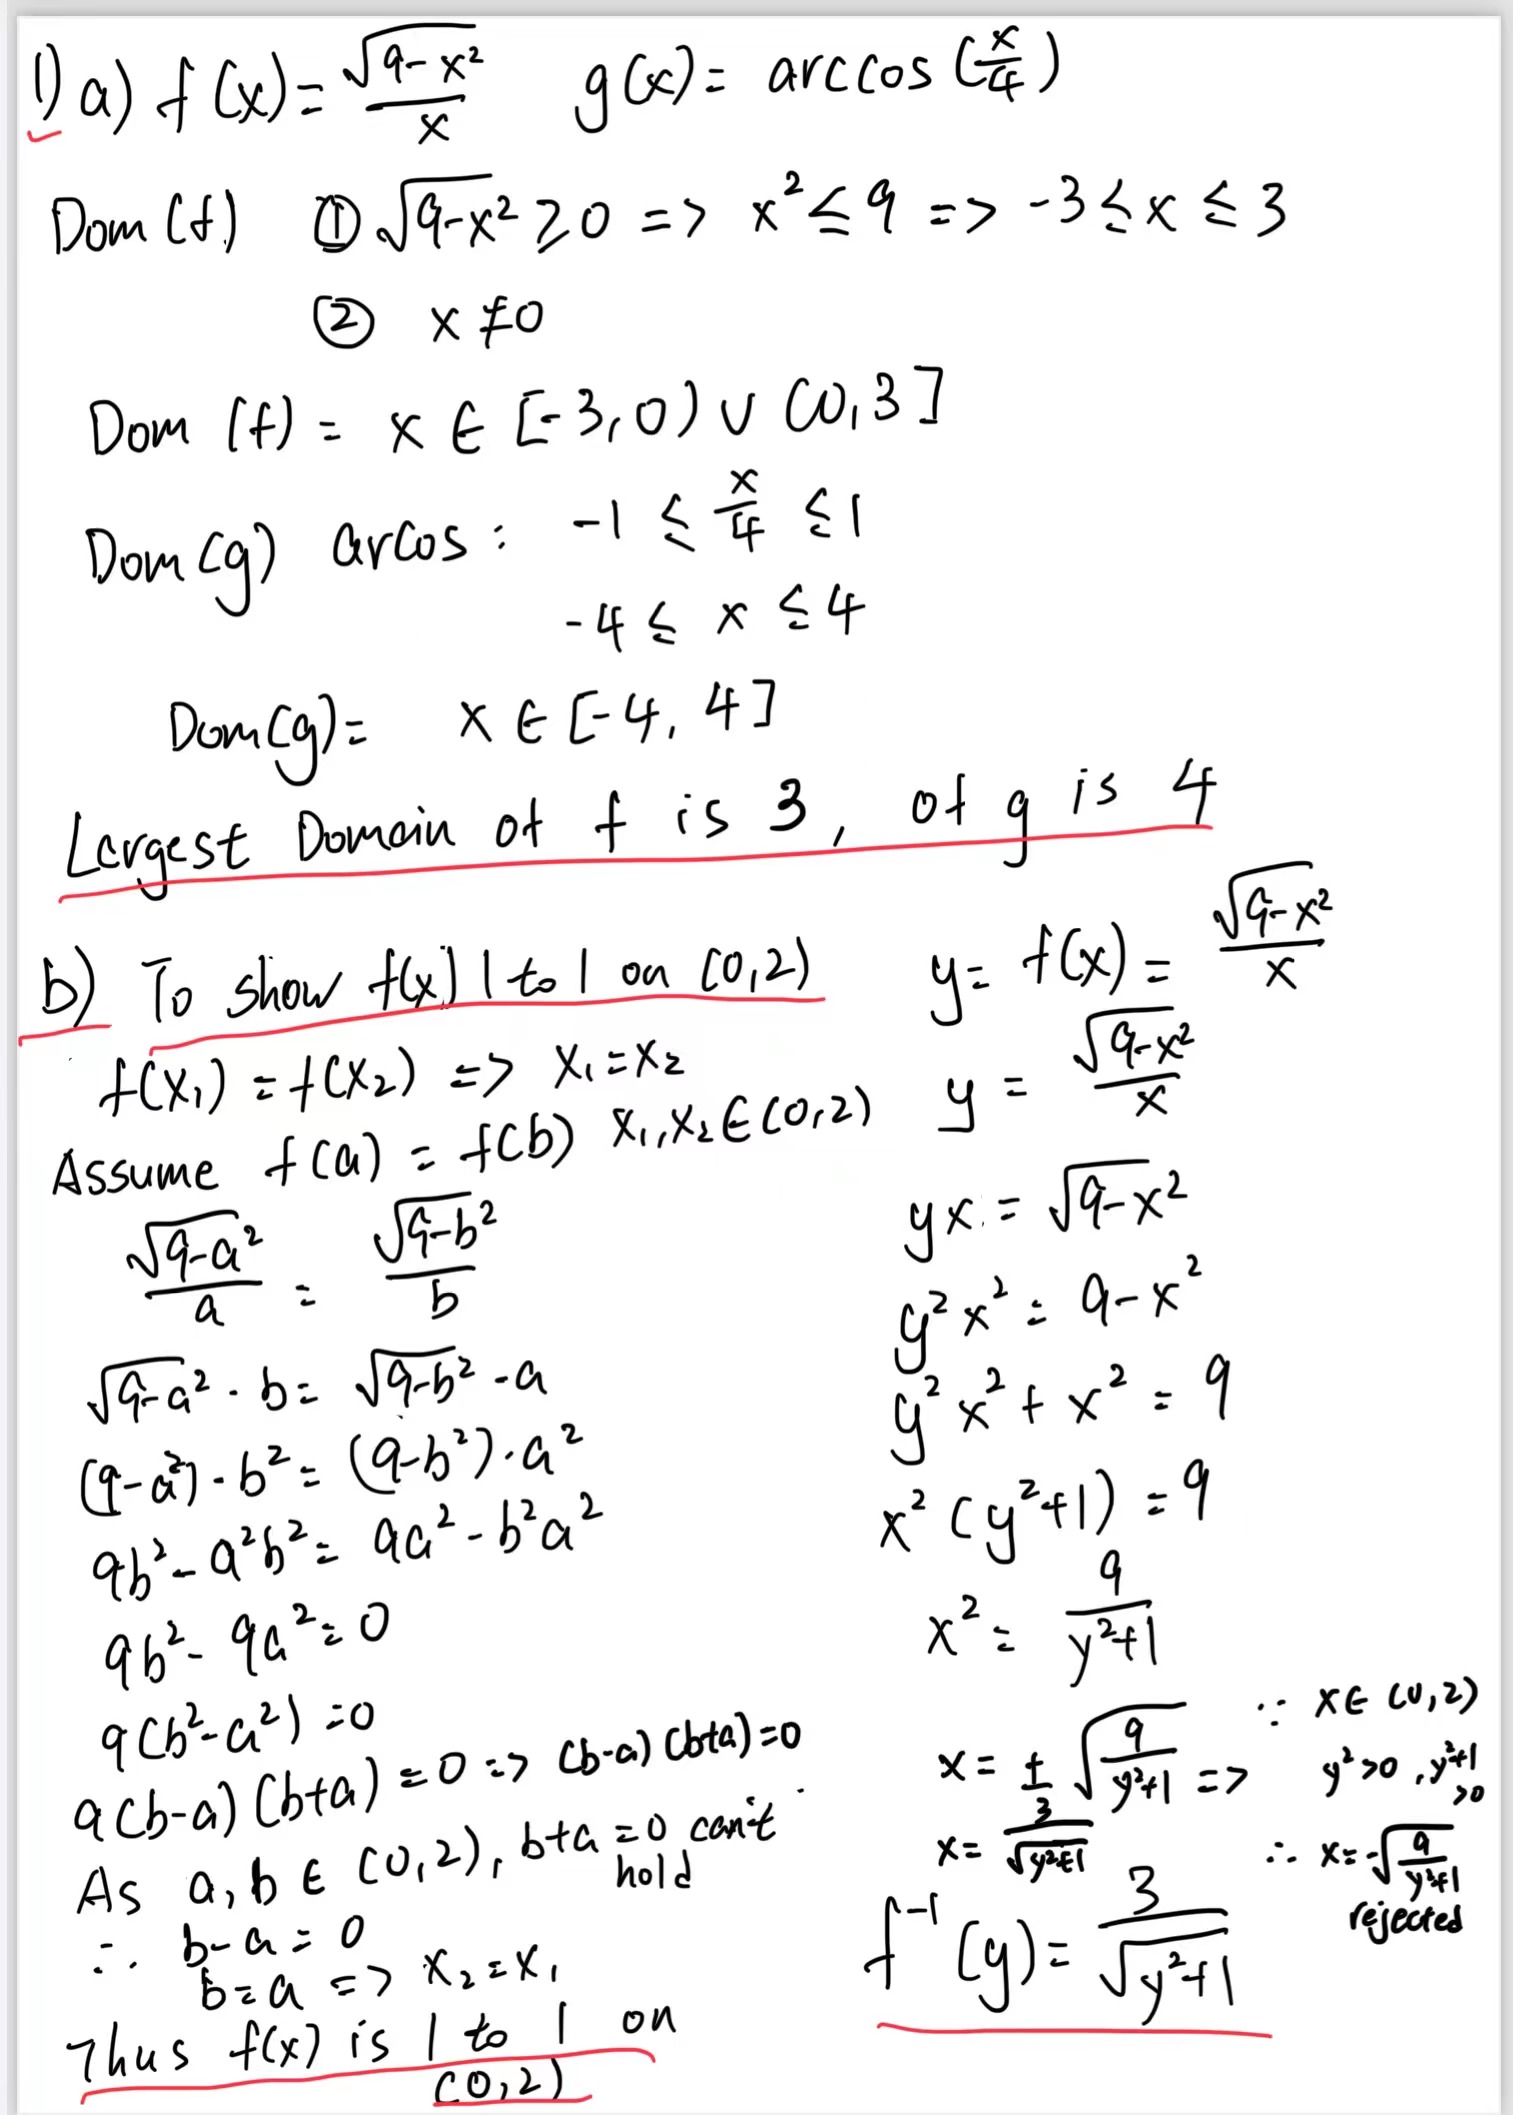 1) a) f(x) = √(9-x²)/x   g(x) = arccos(x/4)
Dom(f) ① √9-x² ≥ 0 => x² ≤ 9 => -3 ≤ x ≤ 3
② x ≠ 0
Dom (f) = x ∈ [-3,0) ∪ (0,3]
Dom(g) arcos : -1 ≤ x/4 ≤ 1
-4 ≤ x ≤ 4
Dom(g) = x ∈ [-4, 4]
Largest Domain of f is 3, of g is 4
b) To show f(x) 1 to 1 on (0,2)
f(x₁) = f(x₂) => x₁ = x₂
Assume f(a) = f(b) x₁,x₂ ∈ (0,2)
√(9-a²)/a = √(9-b²)/b
√9-a² · b = √9-b² · a
(9-a²) · b² = (9-b²) · a²
9b² - a²b² = 9a² - b²a²
9b² - 9a² = 0
9(b²-a²) = 0
9(b-a)(b+a) = 0 => (b-a)(b+a) = 0
As a, b ∈ (0,2), b+a = 0 can't
hold
∴ b-a = 0
b = a => x₂ = x₁
Thus f(x) is 1 to 1 on
(0,2)
y = f(x) = √(9-x²)/x
y = √(9-x²)/x
yx = √9-x²
y²x² = 9-x²
y²x² + x² = 9
x²(y²+1) = 9
x² = 9/(y²+1)
x = ± √(9/(y²+1)) => ∵ x ∈ (0,2)
y² > 0, y²+1 > 0
x = 3/√(y²+1)   ∴ x = -√(9/(y²+1))
rejected
f⁻¹(y) = 3/√(y²+1)